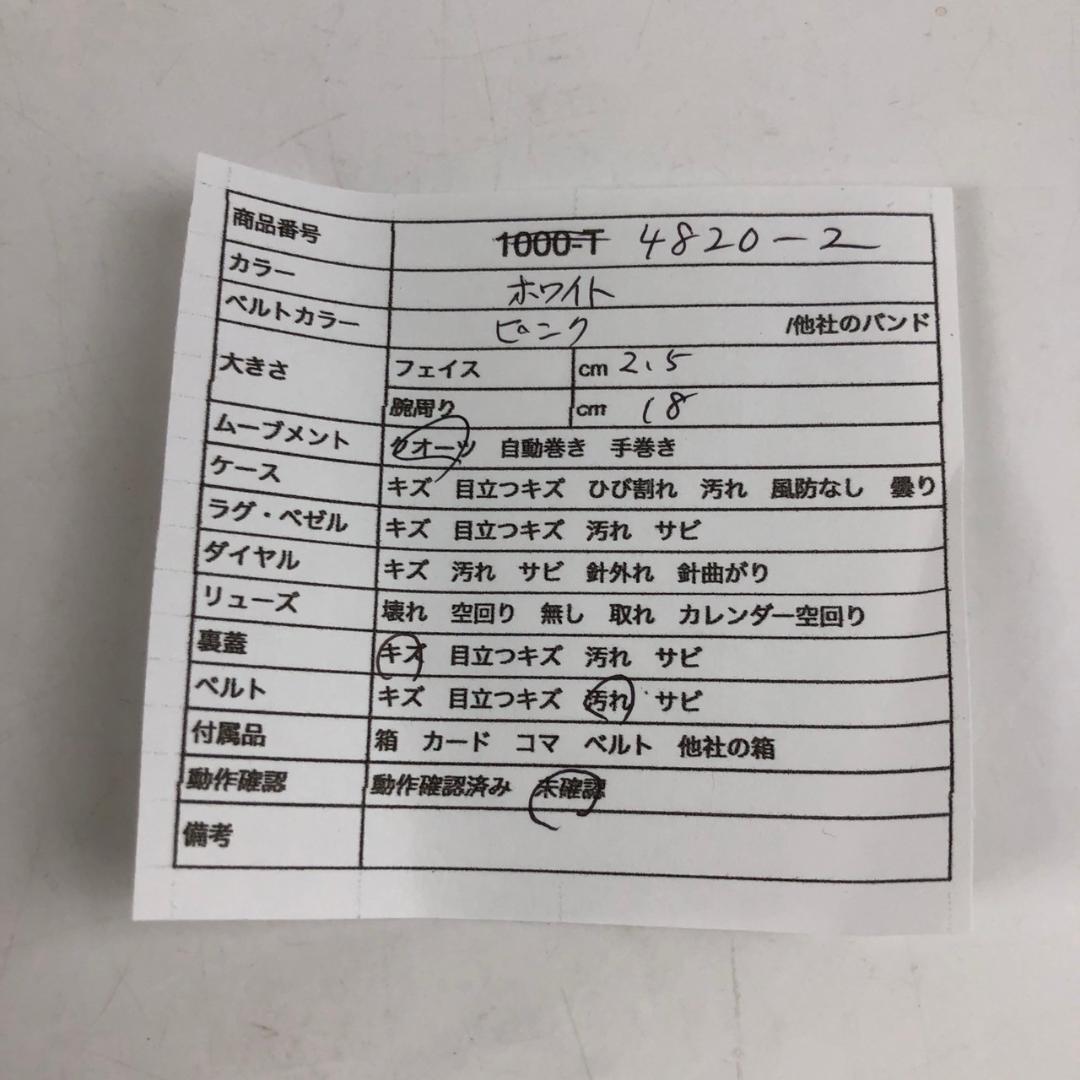 商品番号 1000-T 4820-2
カラー ホワイト
ベルトカラー ピンク /他社のバンド
大きさ フェイス cm 2.5
腕周り cm 18
ムーブメント クオーツ 自動巻き 手巻き
ケース キズ 目立つキズ ひび割れ 汚れ 風防なし 曇り
ラグ・ベゼル キズ 目立つキズ 汚れ サビ
ダイヤル キズ 汚れ サビ 針外れ 針曲がり
リューズ 壊れ 空回り 無し 取れ カレンダー空回り
裏蓋 キズ 目立つキズ 汚れ サビ
ベルト キズ 目立つキズ 汚れ サビ
付属品 箱 カード コマ ベルト 他社の箱
動作確認 動作確認済み 未確認
備考